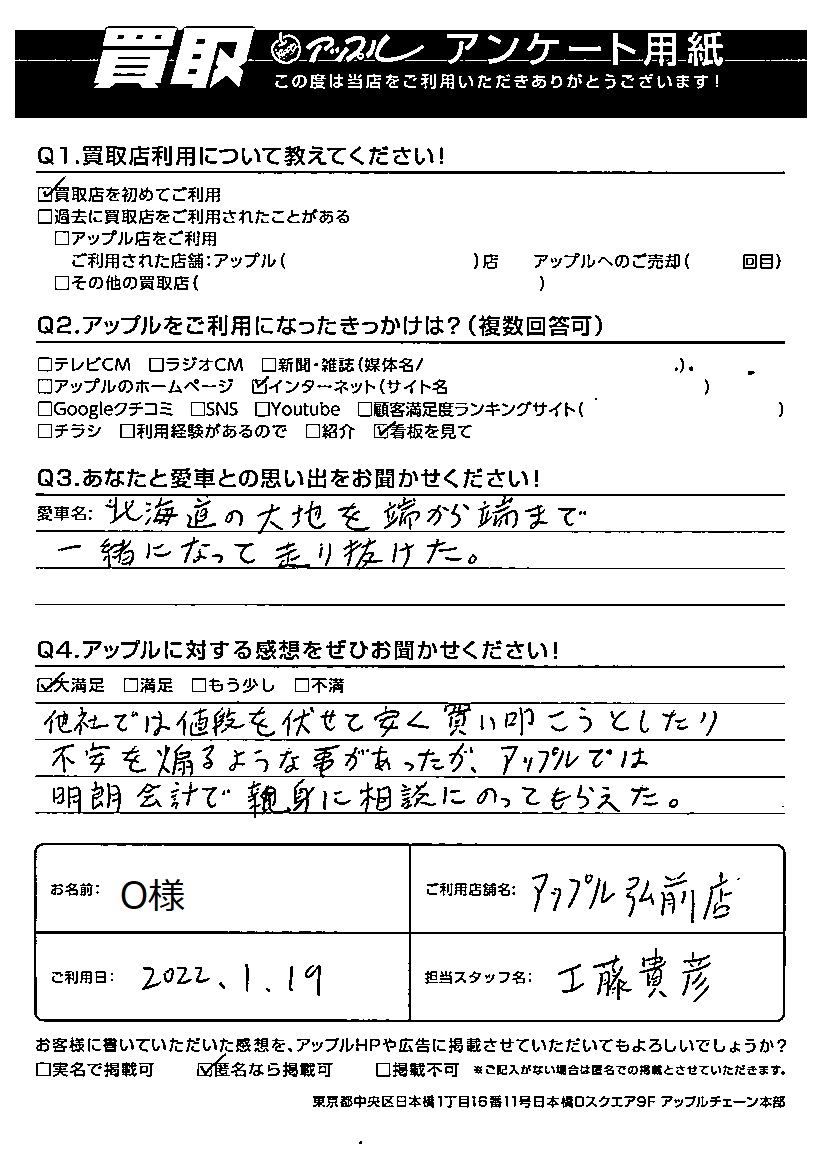 買取 アップル アンケート用紙
この度は当店をご利用いただきありがとうございます!
Q1.買取店利用について教えてください!
☑買取店を初めてご利用
□過去に買取店をご利用されたことがある
□アップル店をご利用
ご利用された店舗:アップル( )店 アップルへのご売却( 回目)
□その他の買取店( )
Q2.アップルをご利用になったきっかけは?(複数回答可)
□テレビCM □ラジオCM □新聞・雑誌(媒体名/ )
□アップルのホームページ ☑インターネット(サイト名 )
□Googleクチコミ □SNS □Youtube □顧客満足度ランキングサイト( )
□チラシ □利用経験があるので □紹介 ☑看板を見て
Q3.あなたと愛車との思い出をお聞かせください!
愛車名: 北海道の大地を端から端まで
一緒になって走り抜けた。
Q4.アップルに対する感想をぜひお聞かせください!
☑大満足 □満足 □もう少し □不満
他社では値段を伏せて安く買い叩こうとしたり
不安を煽るような事があったが、アップルでは
明朗会計で親身に相談にのってもらえた。
お名前: O様 ご利用店舗名: アップル弘前店
ご利用日: 2022.1.19 担当スタッフ名: 工藤貴彦
お客様に書いていただいた感想を、アップルHPや広告に掲載させていただいてもよろしいでしょうか?
□実名で掲載可 ☑匿名なら掲載可 □掲載不可 ※ご記入がない場合は匿名での掲載とさせていただきます。
東京都中央区日本橋1丁目16番11号日本橋Dスクエア9F アップルチェーン本部